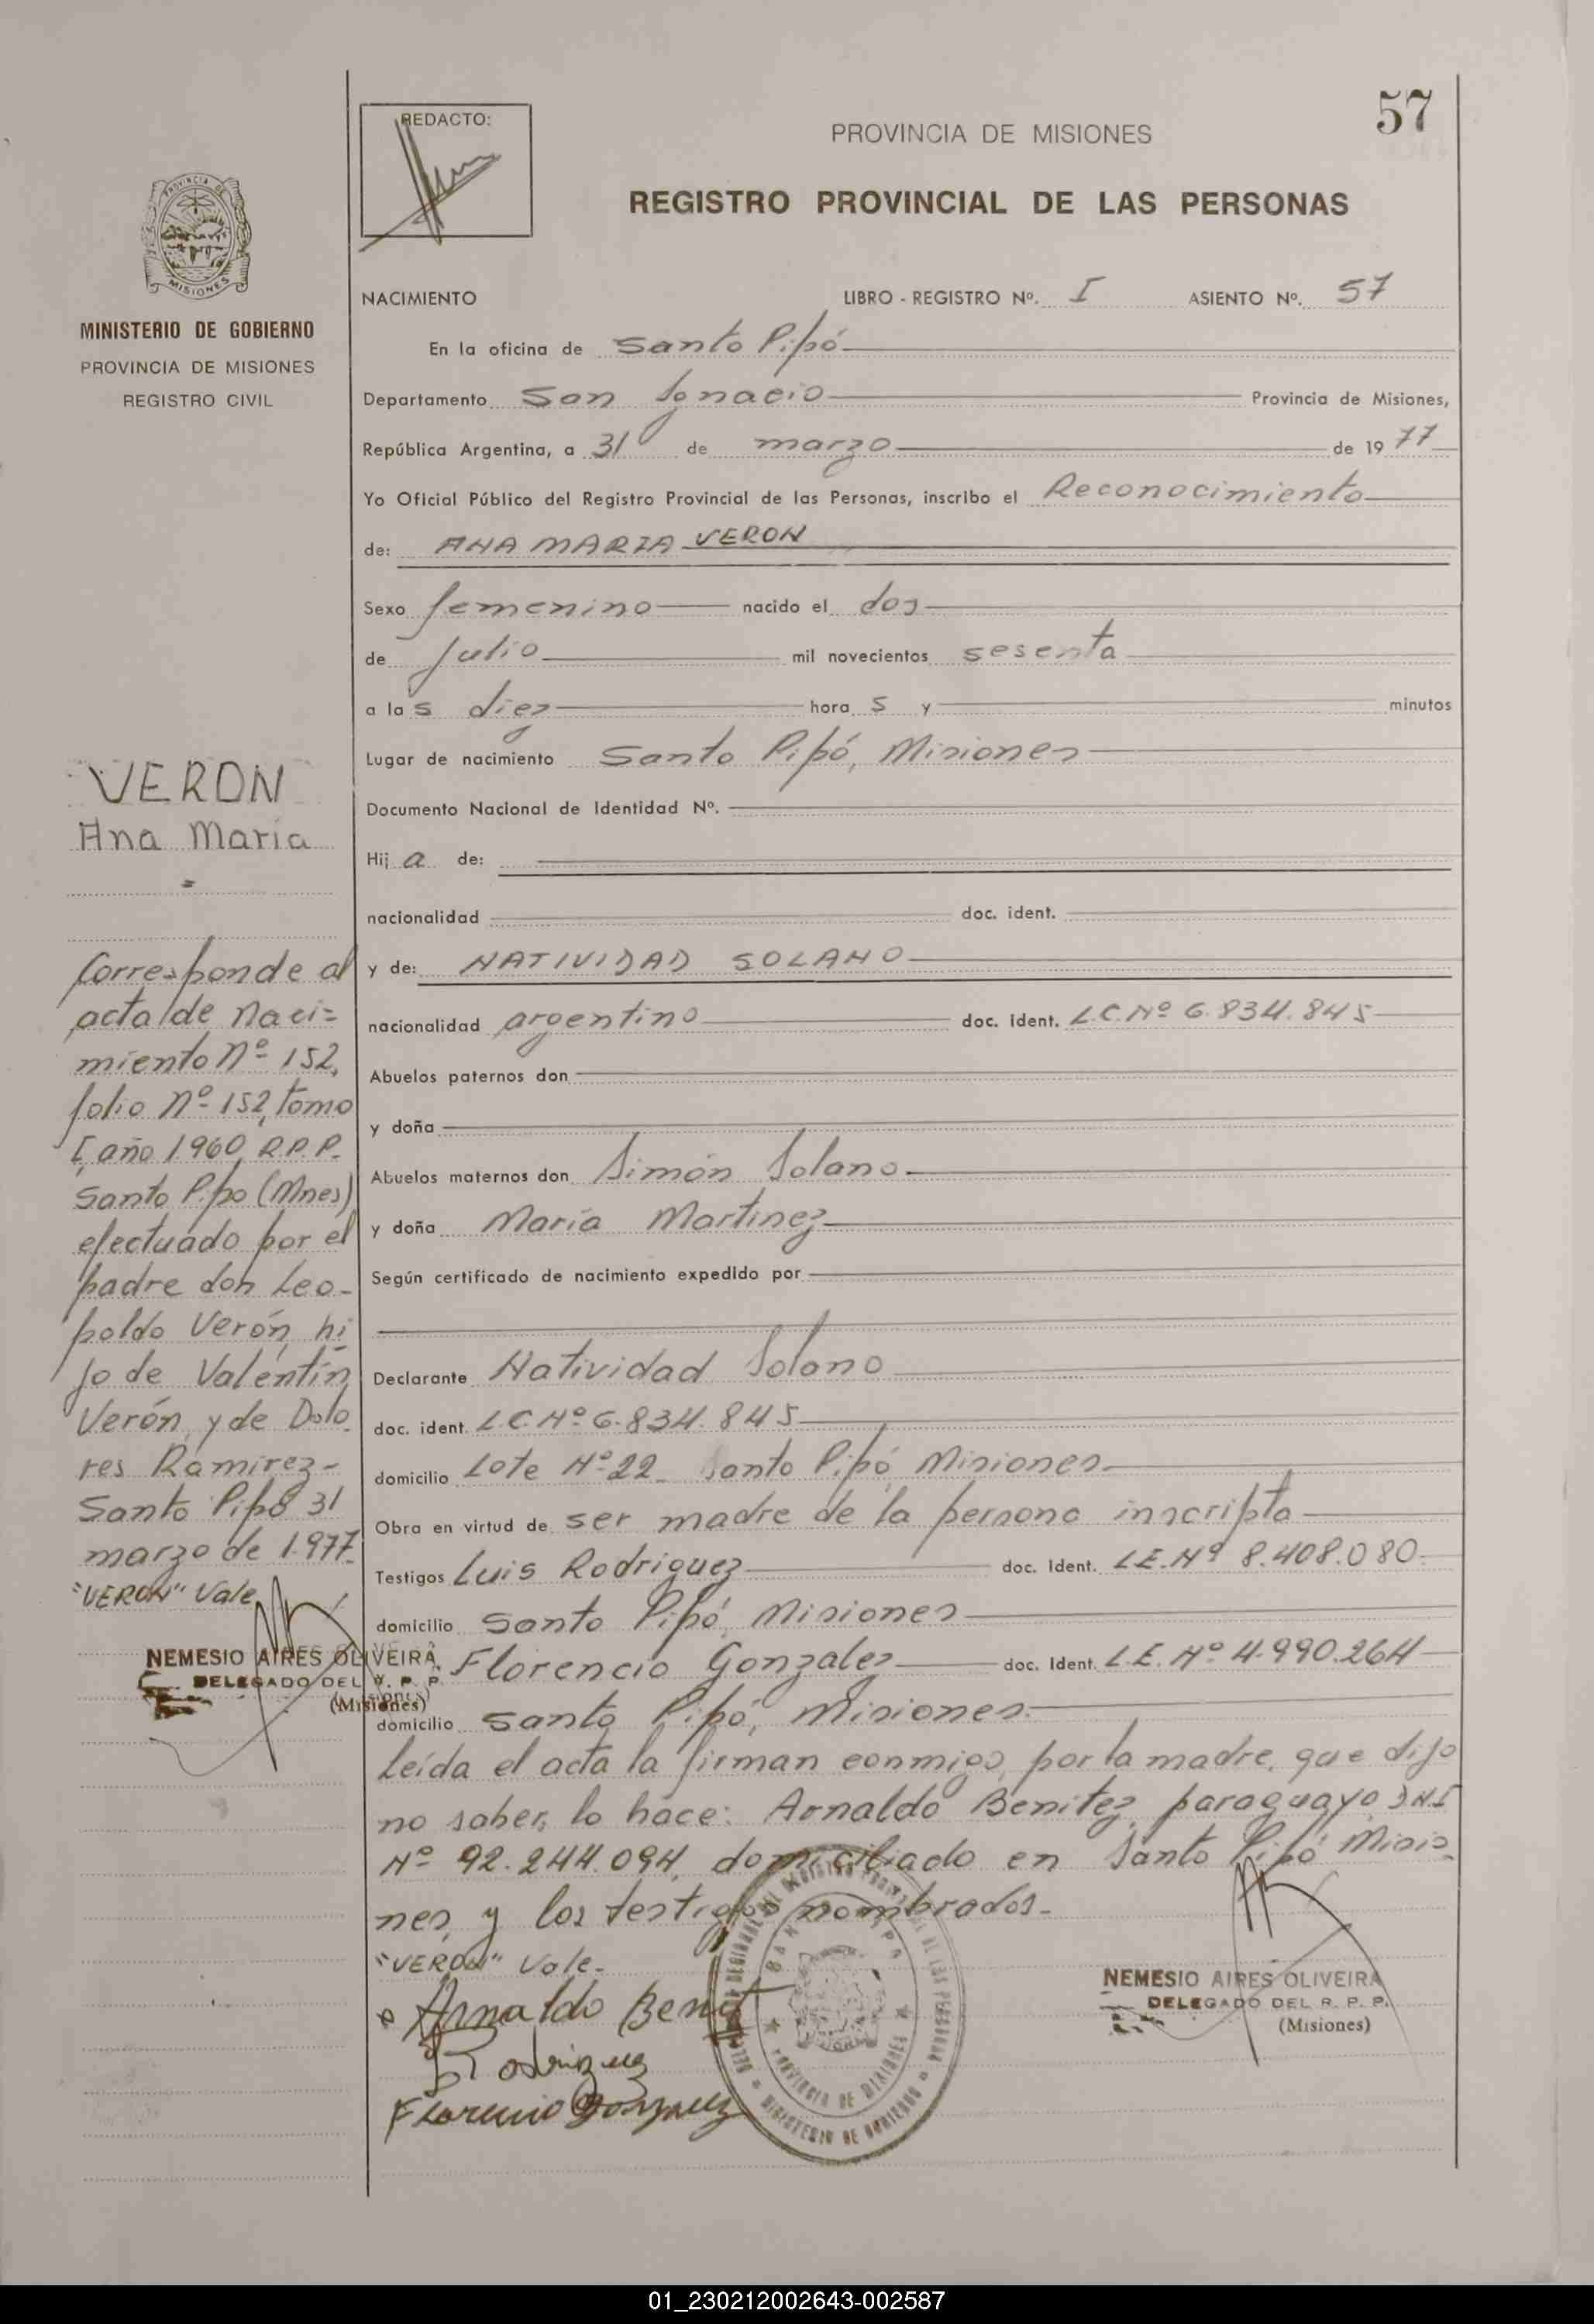 57
REDACTO:
PROVINCIA DE MISIONES
REGISTRO PROVINCIAL DE LAS PERSONAS
MISIONES
MINISTERIO DE GOBIERNO
PROVINCIA DE MISIONES
REGISTRO CIVIL
NACIMIENTO LIBRO - REGISTRO Nº. I ASIENTO Nº. 57
En la oficina de Santo Pipó
Departamento San Ignacio Provincia de Misiones,
República Argentina, a 31 de marzo de 1977
Yo Oficial Público del Registro Provincial de las Personas, inscribo el Reconocimiento
de: ANA MARIA VERON
Sexo femenino nacido el dos
de Julio mil novecientos sesenta
a las diez horas y minutos
Lugar de nacimiento Santo Pipó, Misiones
Documento Nacional de Identidad Nº.
Hija de:
nacionalidad doc. ident.
y de: NATIVIDAD SOLANO
nacionalidad argentino doc. ident. L.C.Nº 6.834.845
Abuelos paternos don
y doña
Abuelos maternos don Simón Solano
y doña María Martinez
Según certificado de nacimiento expedido por
Declarante Natividad Solano
doc. ident. L.C.Nº 6.834.845
domicilio Lote Nº 22 Santo Pipó Misiones
Obra en virtud de ser madre de la persona inscripta
Testigos Luis Rodriguez doc. Ident. L.E.Nº 8.408.080
domicilio Santo Pipó, Misiones
Florencio Gonzalez doc. Ident. L.E. Nº 4.990.264
domicilio Santo Pipó, Misiones.
Leída el acta la firman conmigo, por la madre, que dijo
no saber, lo hace: Arnaldo Benitez, paraguayo DNI
Nº 92.244.094, domiciliado en Santo Pipó Misio
nes, y los testigos nombrados.
"VERON" Vale.
Arnaldo Benit
Rodriguez
Florencio Gonzalez
NEMESIO AIRES OLIVEIRA
DELEGADO DEL R. P. P.
(Misiones)
PROVINCIA DE MISIONES
MINISTERIO DE GOBIERNO
VERON
Ana María
Corresponde al
acta de Naci=
miento Nº 152,
folio Nº 152, tomo
I, año 1960, R.P.P.
Santo Pipo (Mnes)
efectuado por el
padre don Leo-
poldo Verón, hi
jo de Valentín
Verón, y de Dolo
res Ramirez-
Santo Pipó 31
marzo de 1.977.
"VERON" Vale
NEMESIO AIRES OLIVEIRA
DELEGADO DEL R. P. P.
(Misiones)
01_230212002643-002587